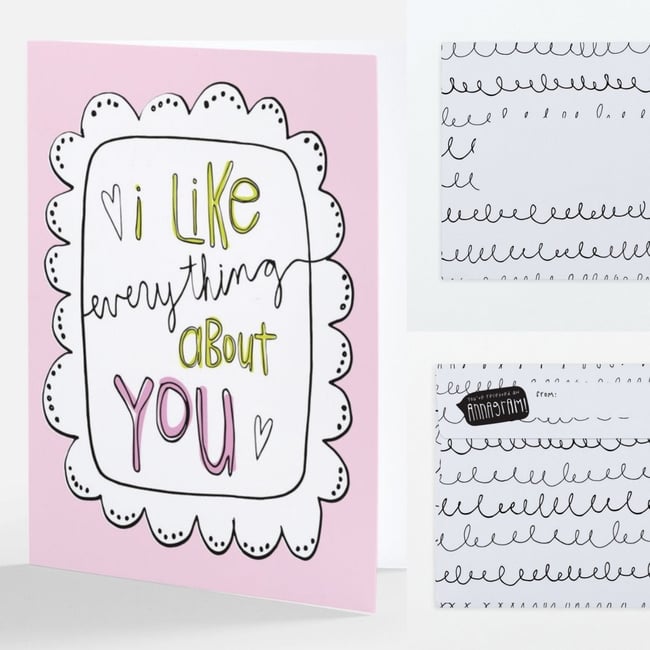 i LiKe
everything
about
YOU
YOU'VE RECEIVED AN
ANNAGRAM!
from: